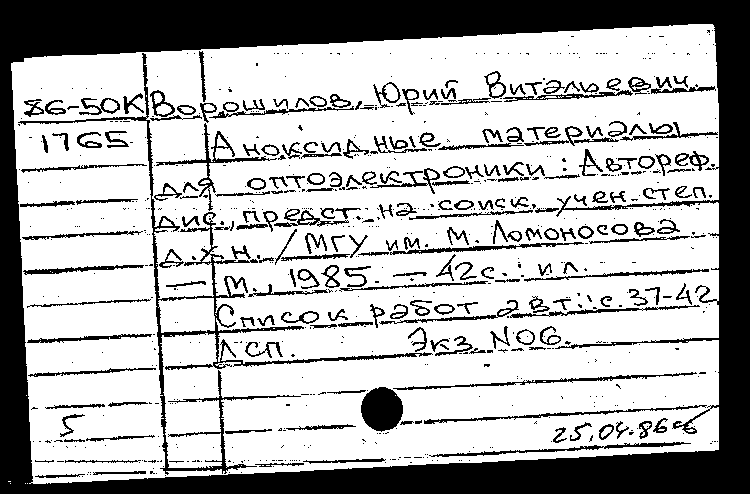 86-50К Ворошилов, Юрий Витальевич.
1765 Аноксидные материалы
для оптоэлектроники : Автореф.
дис., предст. на соиск. учен. степ.
д.х.н. / МГУ им. М. Ломоносова.
— М., 1985. — 42с. : ил.
Список работ авт.: с.37-42
ДСП. Экз N06.
5
25.04.86